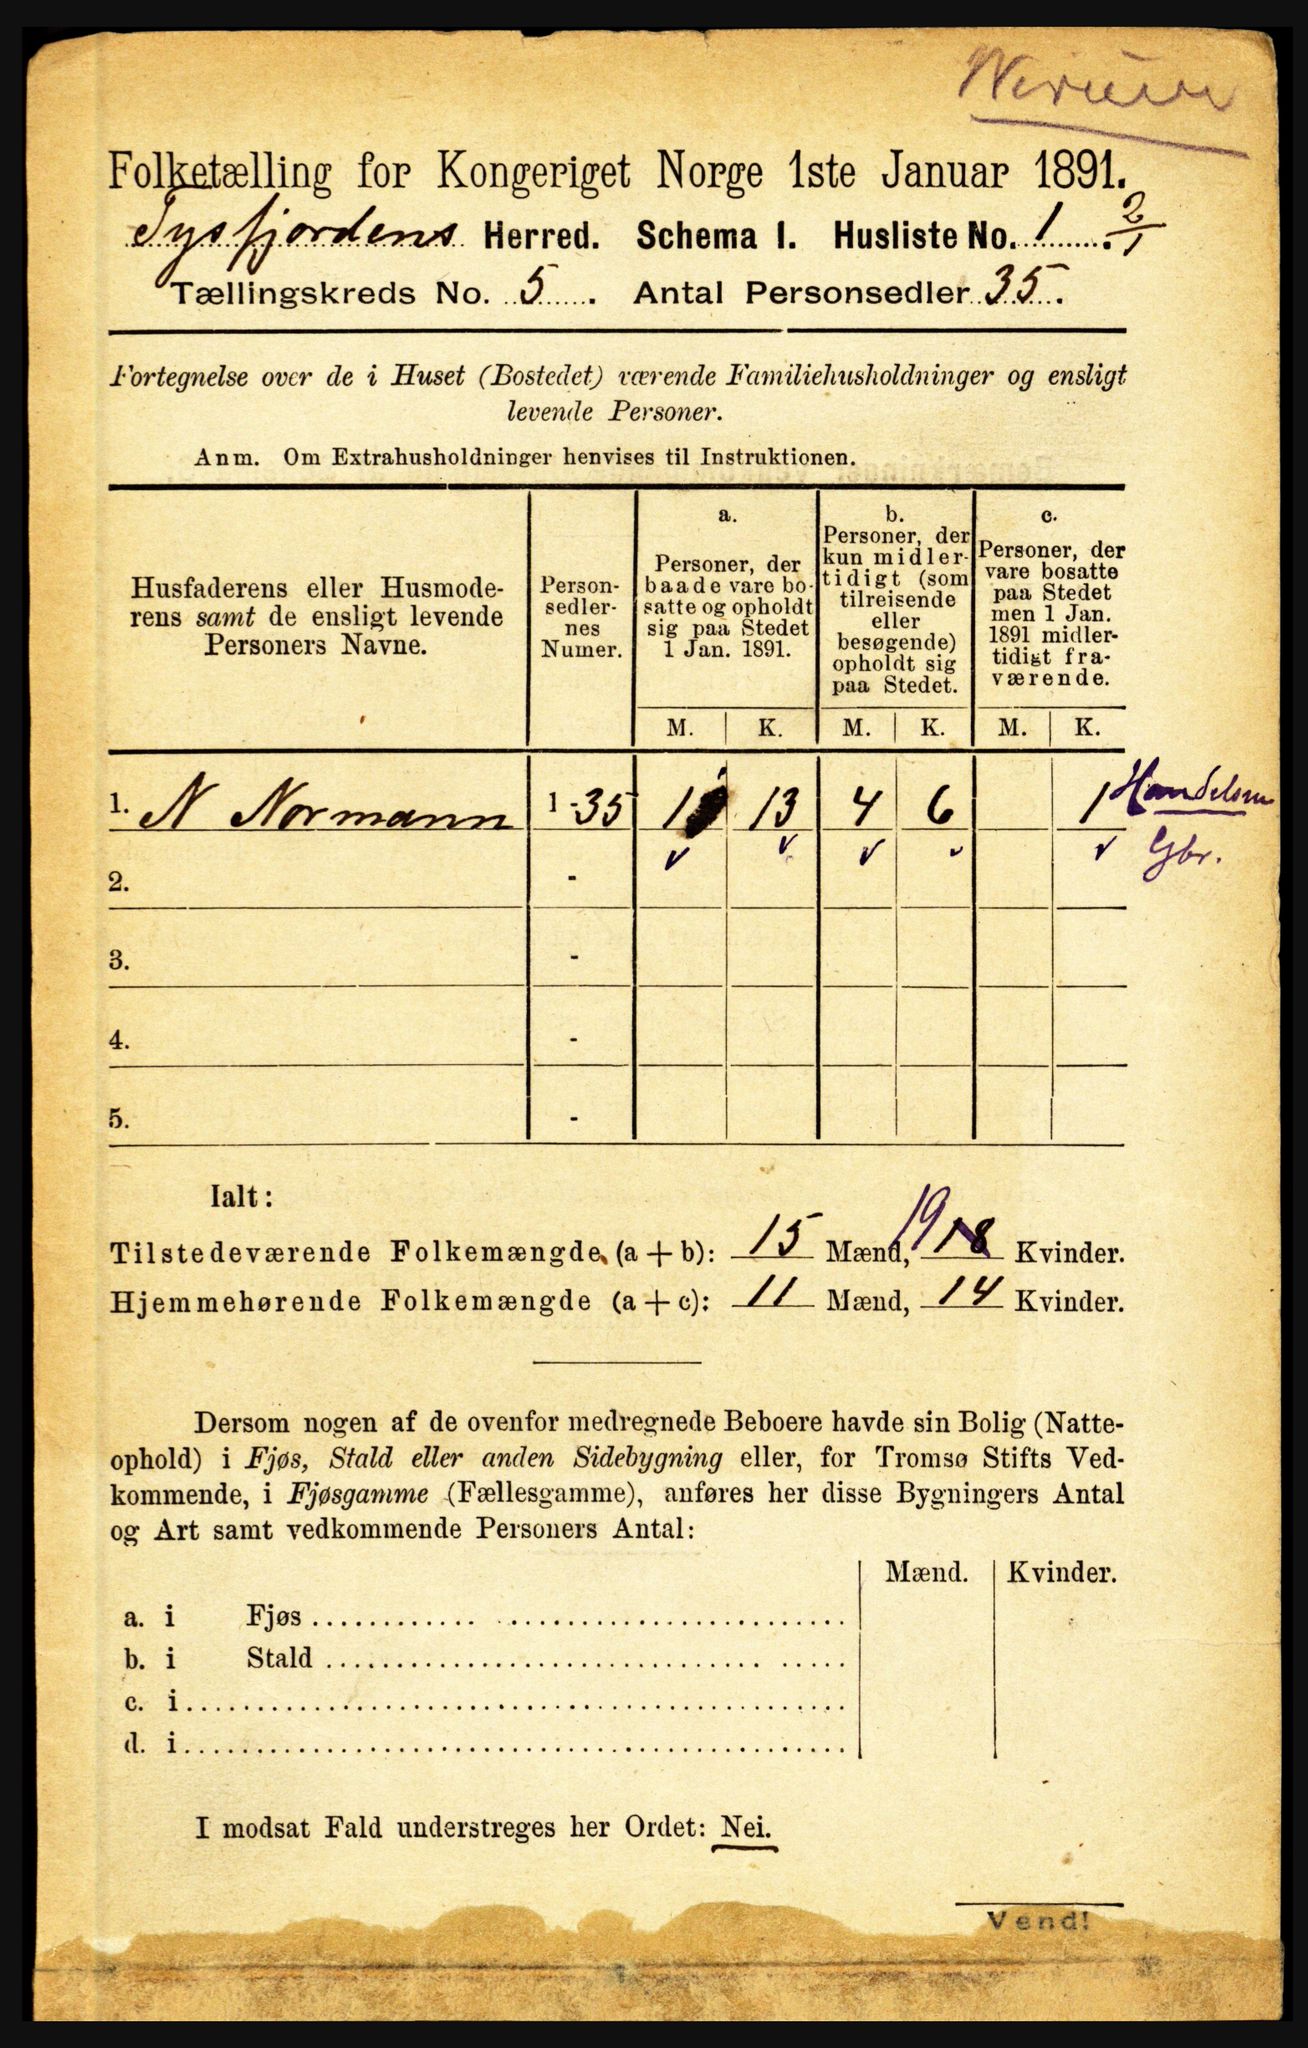 Folketælling for Kongeriget Norge 1ste Januar 1891.
Tysfjordens Herred. Schema I. Husliste No. 1. 2/1
Tællingskreds No. 5. Antal Personsedler 35.
Fortegnelse over de i Huset (Bostedet) værende Familiehusholdninger og ensligt
levende Personer.
Anm. Om Extrahusholdninger henvises til Instruktionen.
Husfaderens eller Husmode-
rens samt de ensligt levende
Personers Navne.
Person-
sedler-
nes
Numer.
a.
Personer, der
baade vare bo-
satte og opholdt
sig paa Stedet
1 Jan. 1891.
b.
Personer, der
kun midler-
tidigt (som
tilreisende
eller
besøgende)
opholdt sig
paa Stedet.
c.
Personer, der
vare bosatte
paa Stedet
men 1 Jan.
1891 midler-
tidigt fra-
værende.
M. K. M. K. M. K.
1. N Normann 1 - 35 11 13 4 6 1 Handelsm
Gbr.
2. -
3. -
4. -
5. -
Ialt:
Tilstedeværende Folkemængde (a + b): 15 Mænd, 19 18 Kvinder.
Hjemmehørende Folkemængde (a + c): 11 Mænd, 14 Kvinder.
Dersom nogen af de ovenfor medregnede Beboere havde sin Bolig (Natte-
ophold) i Fjøs, Stald eller anden Sidebygning eller, for Tromsø Stifts Ved-
kommende, i Fjøsgamme (Fællesgamme), anføres her disse Bygningers Antal
og Art samt vedkommende Personers Antal:
Mænd. Kvinder.
a. i Fjøs
b. i Stald
c. i
d. i
I modsat Fald understreges her Ordet: Nei.
Vend!